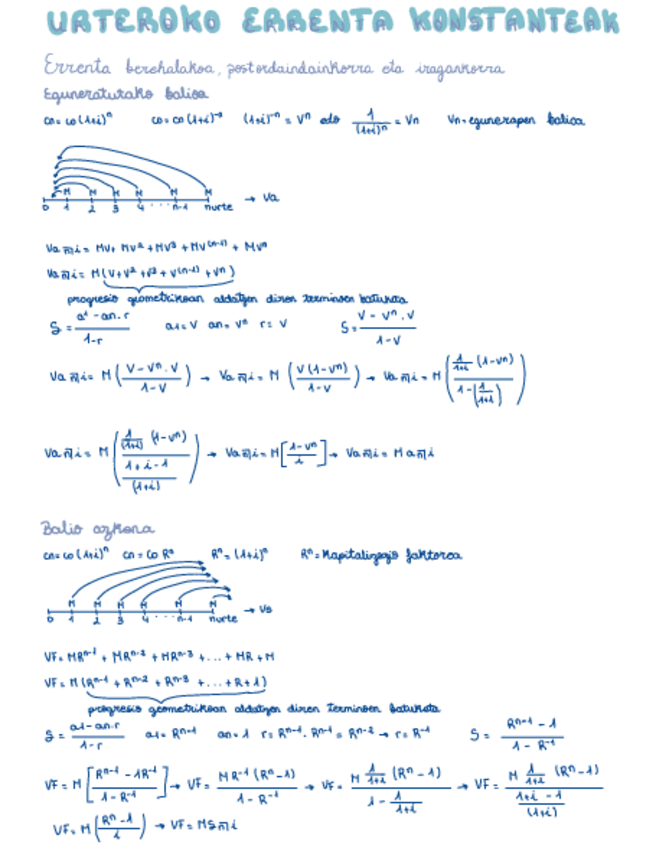 URTEROKO ERRENTA KONSTANTEAK
Errenta berehalakoa, postordaindainkorra eta iragankorra
Eguneratutako balioa
cn=co(1+i)ⁿ co=co(1+i)⁻ⁿ (1+i)⁻ⁿ = Vⁿ edo 1/(1+i)ⁿ = Vn Vn=egunerapen balioa
M M M M M M
0 1 2 3 4 ... n-1 nurte → Va
Va n̅|i = MV+ MV² +MV³ +MV⁽ⁿ⁻¹⁾ + MVⁿ
Va n̅|i = M(V+V² +V³ + V⁽ⁿ⁻¹⁾ +Vⁿ)
progresio geometrikoan aldatzen diren terminoen batuketa
S = a¹-an.r/1-r a1=V an=Vⁿ r=V S= V-Vⁿ.V/1-V
Va n̅|i= M (V-Vⁿ.V/1-V) → Va n̅|i= M (V(1-Vⁿ)/1-V) → Va n̅|i = M (1/1+i (1-Vⁿ)/1-(1/1+i))
Va n̅|i= M (1/(1+i) (1-Vⁿ)/1+i-1/(1+i)) → Va n̅|i= M[1-Vⁿ/i] → Va n̅|i= M a n̅|i
Balio azkena
cn=co(1+i)ⁿ cn=co Rⁿ Rⁿ=(1+i)ⁿ Rⁿ=Kapitalizazio faktorea
M M M M M M
0 1 2 3 4 ... n-1 nurte → Vs
VF= MRⁿ⁻¹ + MRⁿ⁻² + MRⁿ⁻³ +...+ MR+M
VF= M(Rⁿ⁻¹ + Rⁿ⁻² + Rⁿ⁻³ +...+R+1)
progresio geometrikoan aldatzen diren terminoen batuketa
S = a1-an.r/1-r a1= Rⁿ⁻¹ an=1 r= Rⁿ⁻¹. Rⁿ⁻¹ = Rⁿ⁻² → r= R⁻¹ S= Rⁿ⁻¹ - 1/1-R⁻¹
VF= M [Rⁿ⁻¹ -1R⁻¹/1-R⁻¹] → VF= MR⁻¹(Rⁿ-1)/1-R⁻¹ → VF= M 1/1+i (Rⁿ-1)/1- 1/1+i → VF= M 1/1+i (Rⁿ-1)/1+i-1/(1+i)
VF= M(Rⁿ-1/i) → VF= MS n̅|i